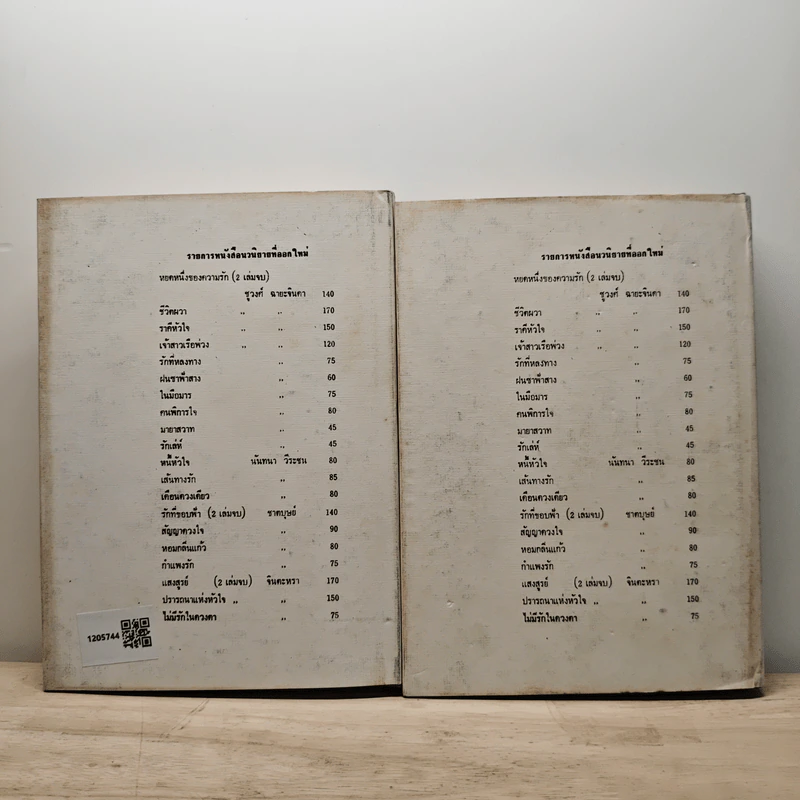 รายการหนังสือนวนิยายที่ออกใหม่
หยดหนึ่งของความรัก (2 เล่มจบ)
ชูวงศ์ ฉายะจินดา 140
ชีวิตผวา ,, ,, 170
ราคีหัวใจ ,, ,, 150
เจ้าสาวเรือพ่วง ,, ,, 120
รักที่หลงทาง ,, 75
ฝนซาฟ้าสาง ,, 60
ในมือมาร ,, 75
คนพิการใจ ,, 80
มายาสวาท ,, 45
รักเล่ห์ ,, 45
หนี้หัวใจ นันทนา วีระชน 80
เส้นทางรัก ,, 85
เดือนดวงเดียว ,, 80
รักที่ขอบฟ้า (2 เล่มจบ) ชาตบุษย์ 140
สัญญาดวงใจ ,, 90
หอมกลิ่นแก้ว ,, 80
กำแพงรัก ,, 75
แสงสูรย์ (2 เล่มจบ) จินตะหรา 170
ปรารถนาแห่งหัวใจ ,, ,, 150
ไม่มีรักในดวงตา ,, 75
1205744
รายการหนังสือนวนิยายที่ออกใหม่
หยดหนึ่งของความรัก (2 เล่มจบ)
ชูวงศ์ ฉายะจินดา 140
ชีวิตผวา ,, ,, 170
ราคีหัวใจ ,, ,, 150
เจ้าสาวเรือพ่วง ,, ,, 120
รักที่หลงทาง ,, 75
ฝนซาฟ้าสาง ,, 60
ในมือมาร ,, 75
คนพิการใจ ,, 80
มายาสวาท ,, 45
รักเล่ห์ ,, 45
หนี้หัวใจ นันทนา วีระชน 80
เส้นทางรัก ,, 85
เดือนดวงเดียว ,, 80
รักที่ขอบฟ้า (2 เล่มจบ) ชาตบุษย์ 140
สัญญาดวงใจ ,, 90
หอมกลิ่นแก้ว ,, 80
กำแพงรัก ,, 75
แสงสูรย์ (2 เล่มจบ) จินตะหรา 170
ปรารถนาแห่งหัวใจ ,, ,, 150
ไม่มีรักในดวงตา ,, 75